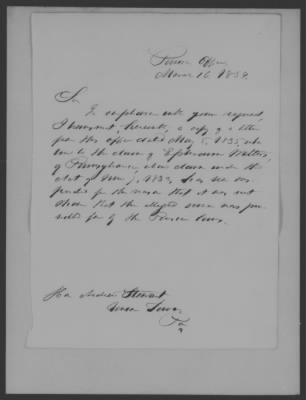 Pension Office
March 16 1852.
Sir
In compliance with your request,
I transmit, herewith, a copy of a letter
from this office dated May 5, 1835, rela-
tive to the claim of Ephraim Walters,
of Pennsylvania, whose claim under the
Act of June 7, 1832, was sus-
pended for the reason that it was not
shown that the alleged service was pro-
vided for by the Pension laws.
Hon. Andrew Stewart
Union Town
Pa